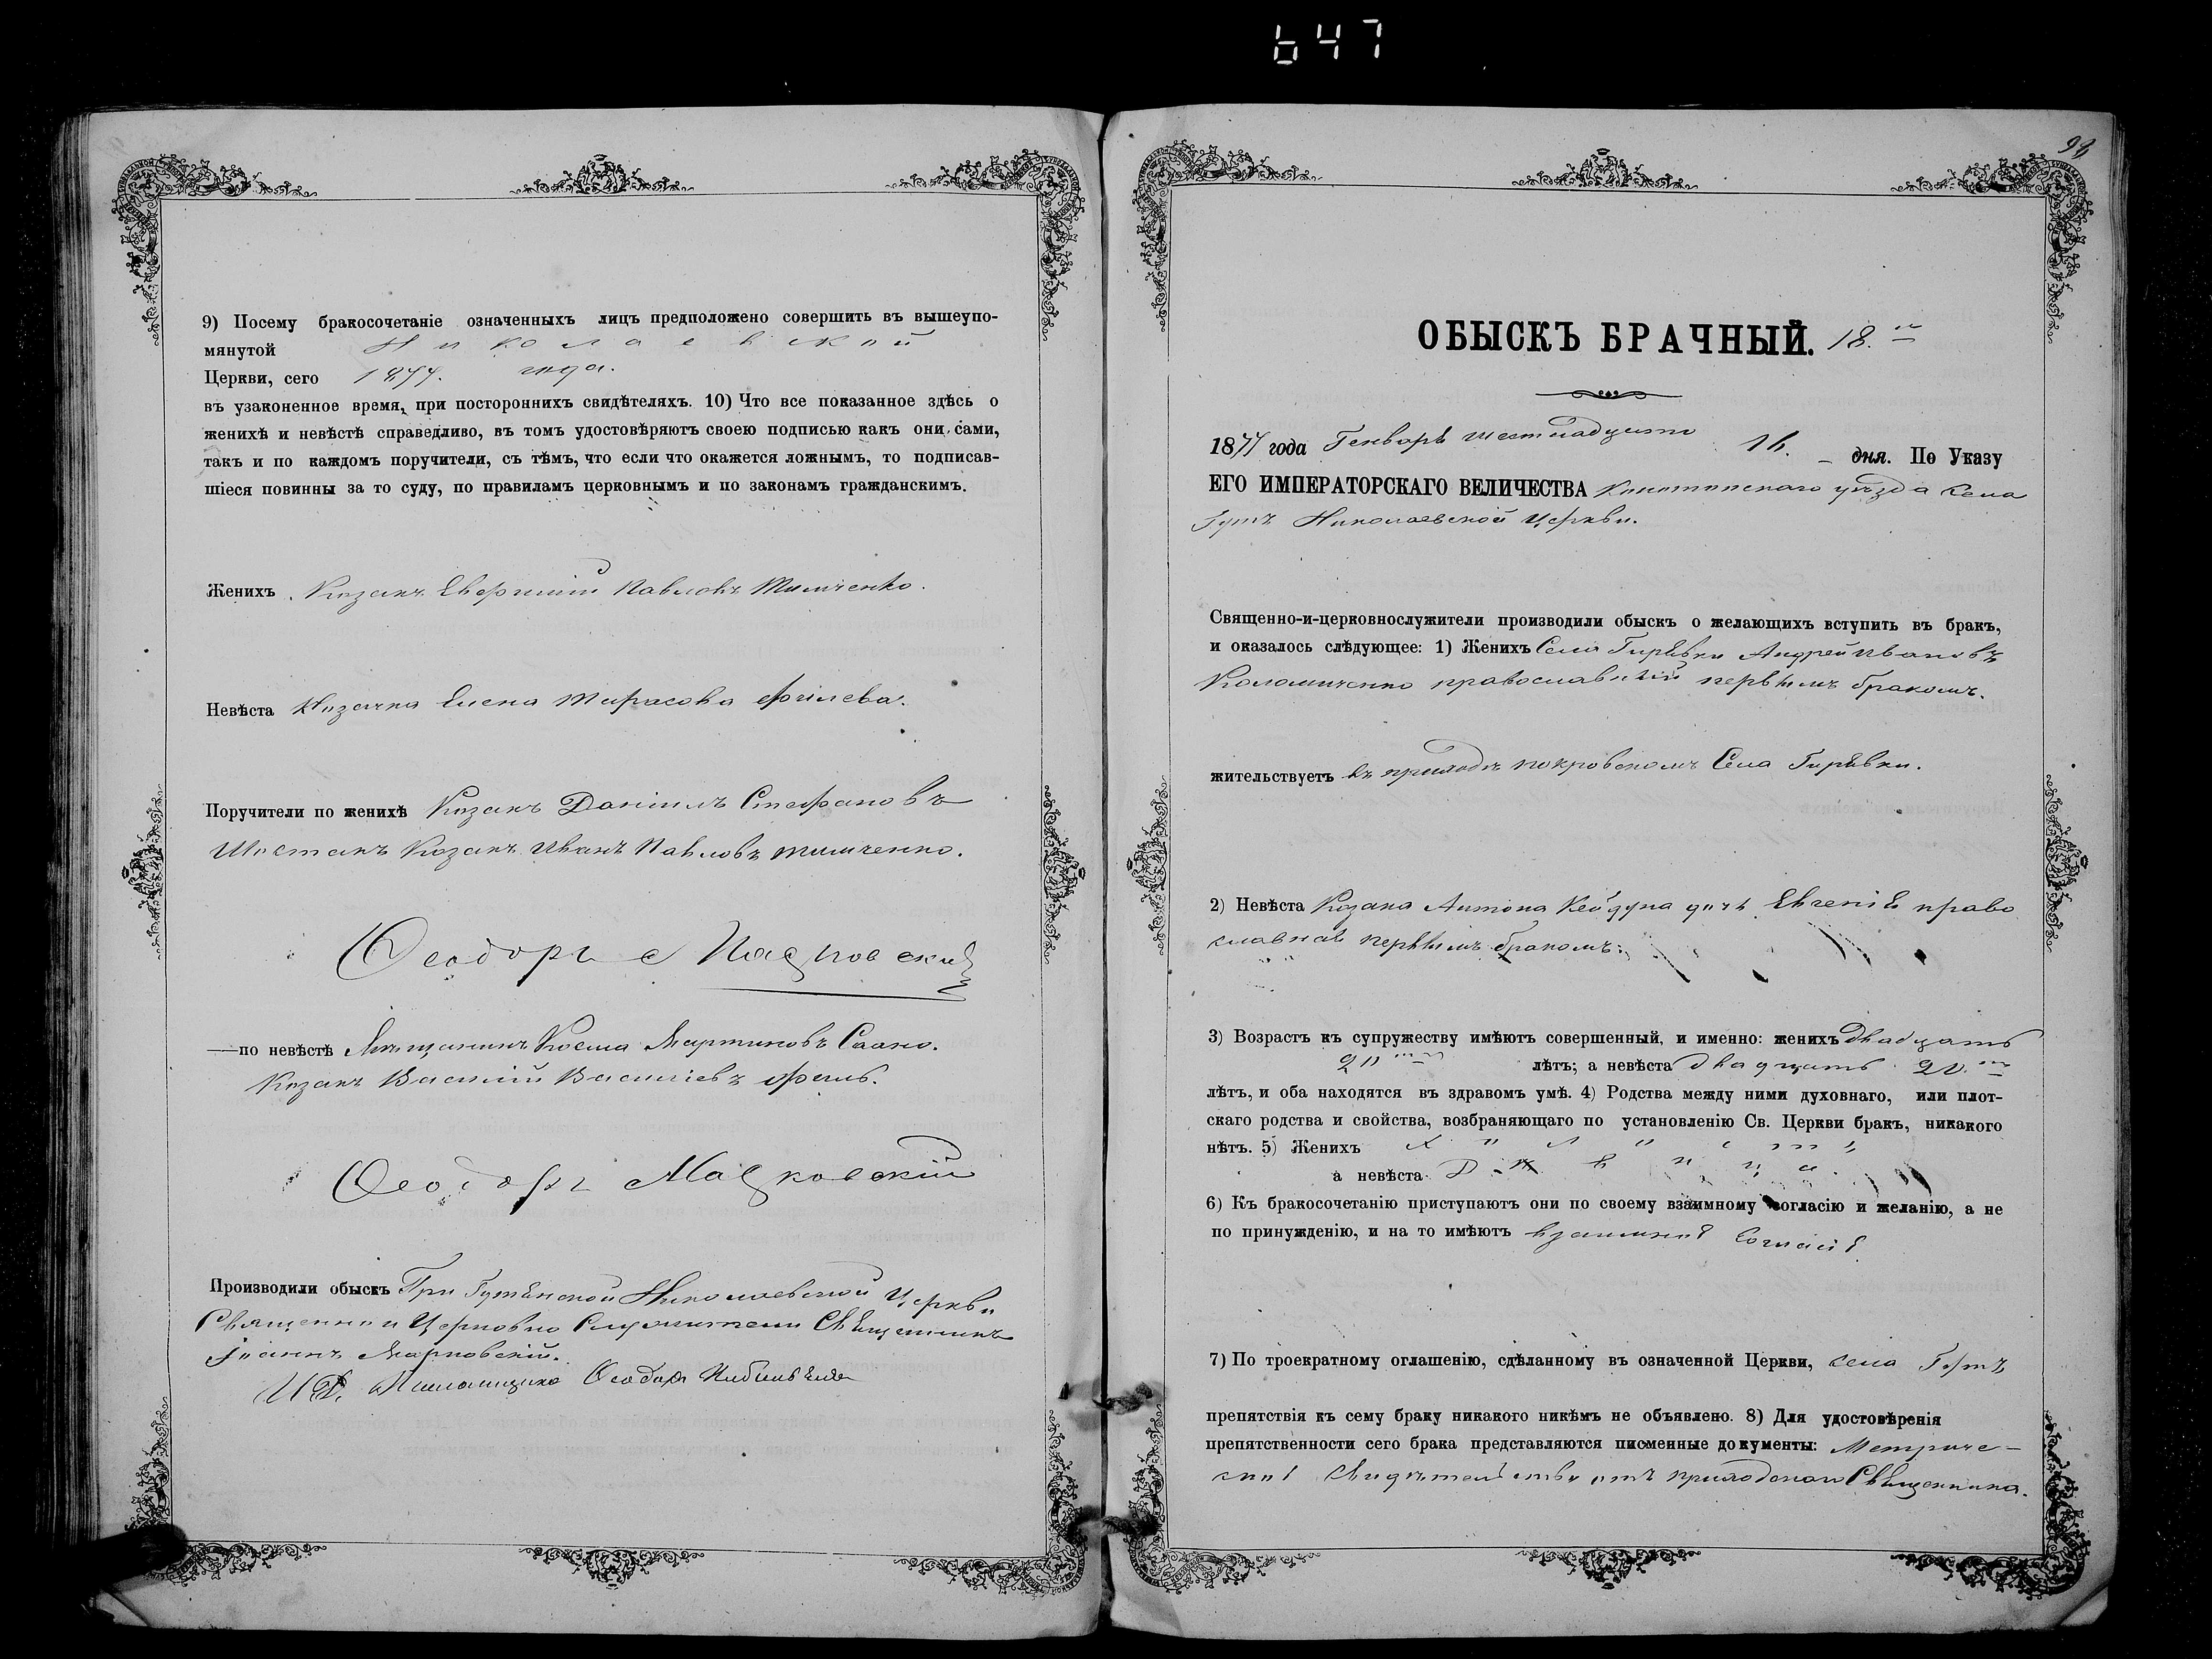 647
9) Посему бракосочетаніе означенныхъ лицъ предположено совершить въ вышеупо-
мянутой Николаевской
Церкви, сего 1877. года.
въ узаконенное время, при постороннихъ свидѣтеляхъ. 10) Что все показанное здѣсь о
женихѣ и невѣстѣ справедливо, въ томъ удостовѣряютъ своею подписью какъ они, сами,
такъ и по каждомъ поручители, съ тѣмъ, что если что окажется ложнымъ, то подписав-
шіеся повинны за то суду, по правиламъ церковнымъ и по законамъ гражданскимъ.
Женихъ Козакъ Павловъ Тимченко.
Невѣста Козачка Елена Тарасова
Поручители по женихѣ Козакъ Даніилъ Стефановъ
Шостакъ Козакъ Иванъ Павловъ Тимченко.
Ѳеодоръ
—по невѣстѣ Мѣщанинъ Косма Мартиновъ
Козакъ Василій Василіевъ
Ѳеодоръ
Производили обыскъ При Гутянской Николаевской Церкви
Священно и Церковно Служители Священникъ
Іоаннъ Марковскій.
И. Д. Псаломщика Ѳеодоръ
ОБЫСКЪ БРАЧНЫЙ. 18.
1877 года Генваря шестнадцато 16. дня. По Указу
ЕГО ИМПЕРАТОРСКАГО ВЕЛИЧЕСТВА Конотопскаго уѣзда села
Гутъ Николаевской Церкви.
Священно-и-церковнослужители производили обыскъ о желающихъ вступить въ бракъ,
и оказалось слѣдующее: 1) Женихъ Села Гирявки Андрей Ивановъ
Коломиченко православный первымъ бракомъ.
жительствуетъ въ приходѣ покровскомъ Села Гирявки.
2) Невѣста Козака Антона дочь Евгенія право
славная первымъ бракомъ.
3) Возрастъ къ супружеству имѣютъ совершенный, и именно: женихъ двадцать
20 лѣтъ; а невѣста двадцать 20.
лѣтъ, и оба находятся въ здравомъ умѣ. 4) Родства между ними духовнаго, или плот-
скаго родства и свойства, возбраняющаго по установленію Св. Церкви бракъ, никакого
нѣтъ. 5) Женихъ Холостъ,
а невѣста Дѣвица.
6) Къ бракосочетанію приступаютъ они по своему взаимному согласію и желанію, а не
по принужденію, и на то имѣютъ взаимное согласіе
7) По троекратному оглашенію, сдѣланному въ означенной Церкви, села Гутъ
препятствія къ сему браку никакого никѣмъ не объявлено. 8) Для удостовѣренія
препятственности сего брака представляются письменные документы: Метриче-
ское Свидѣтельство отъ приходскаго Священника.